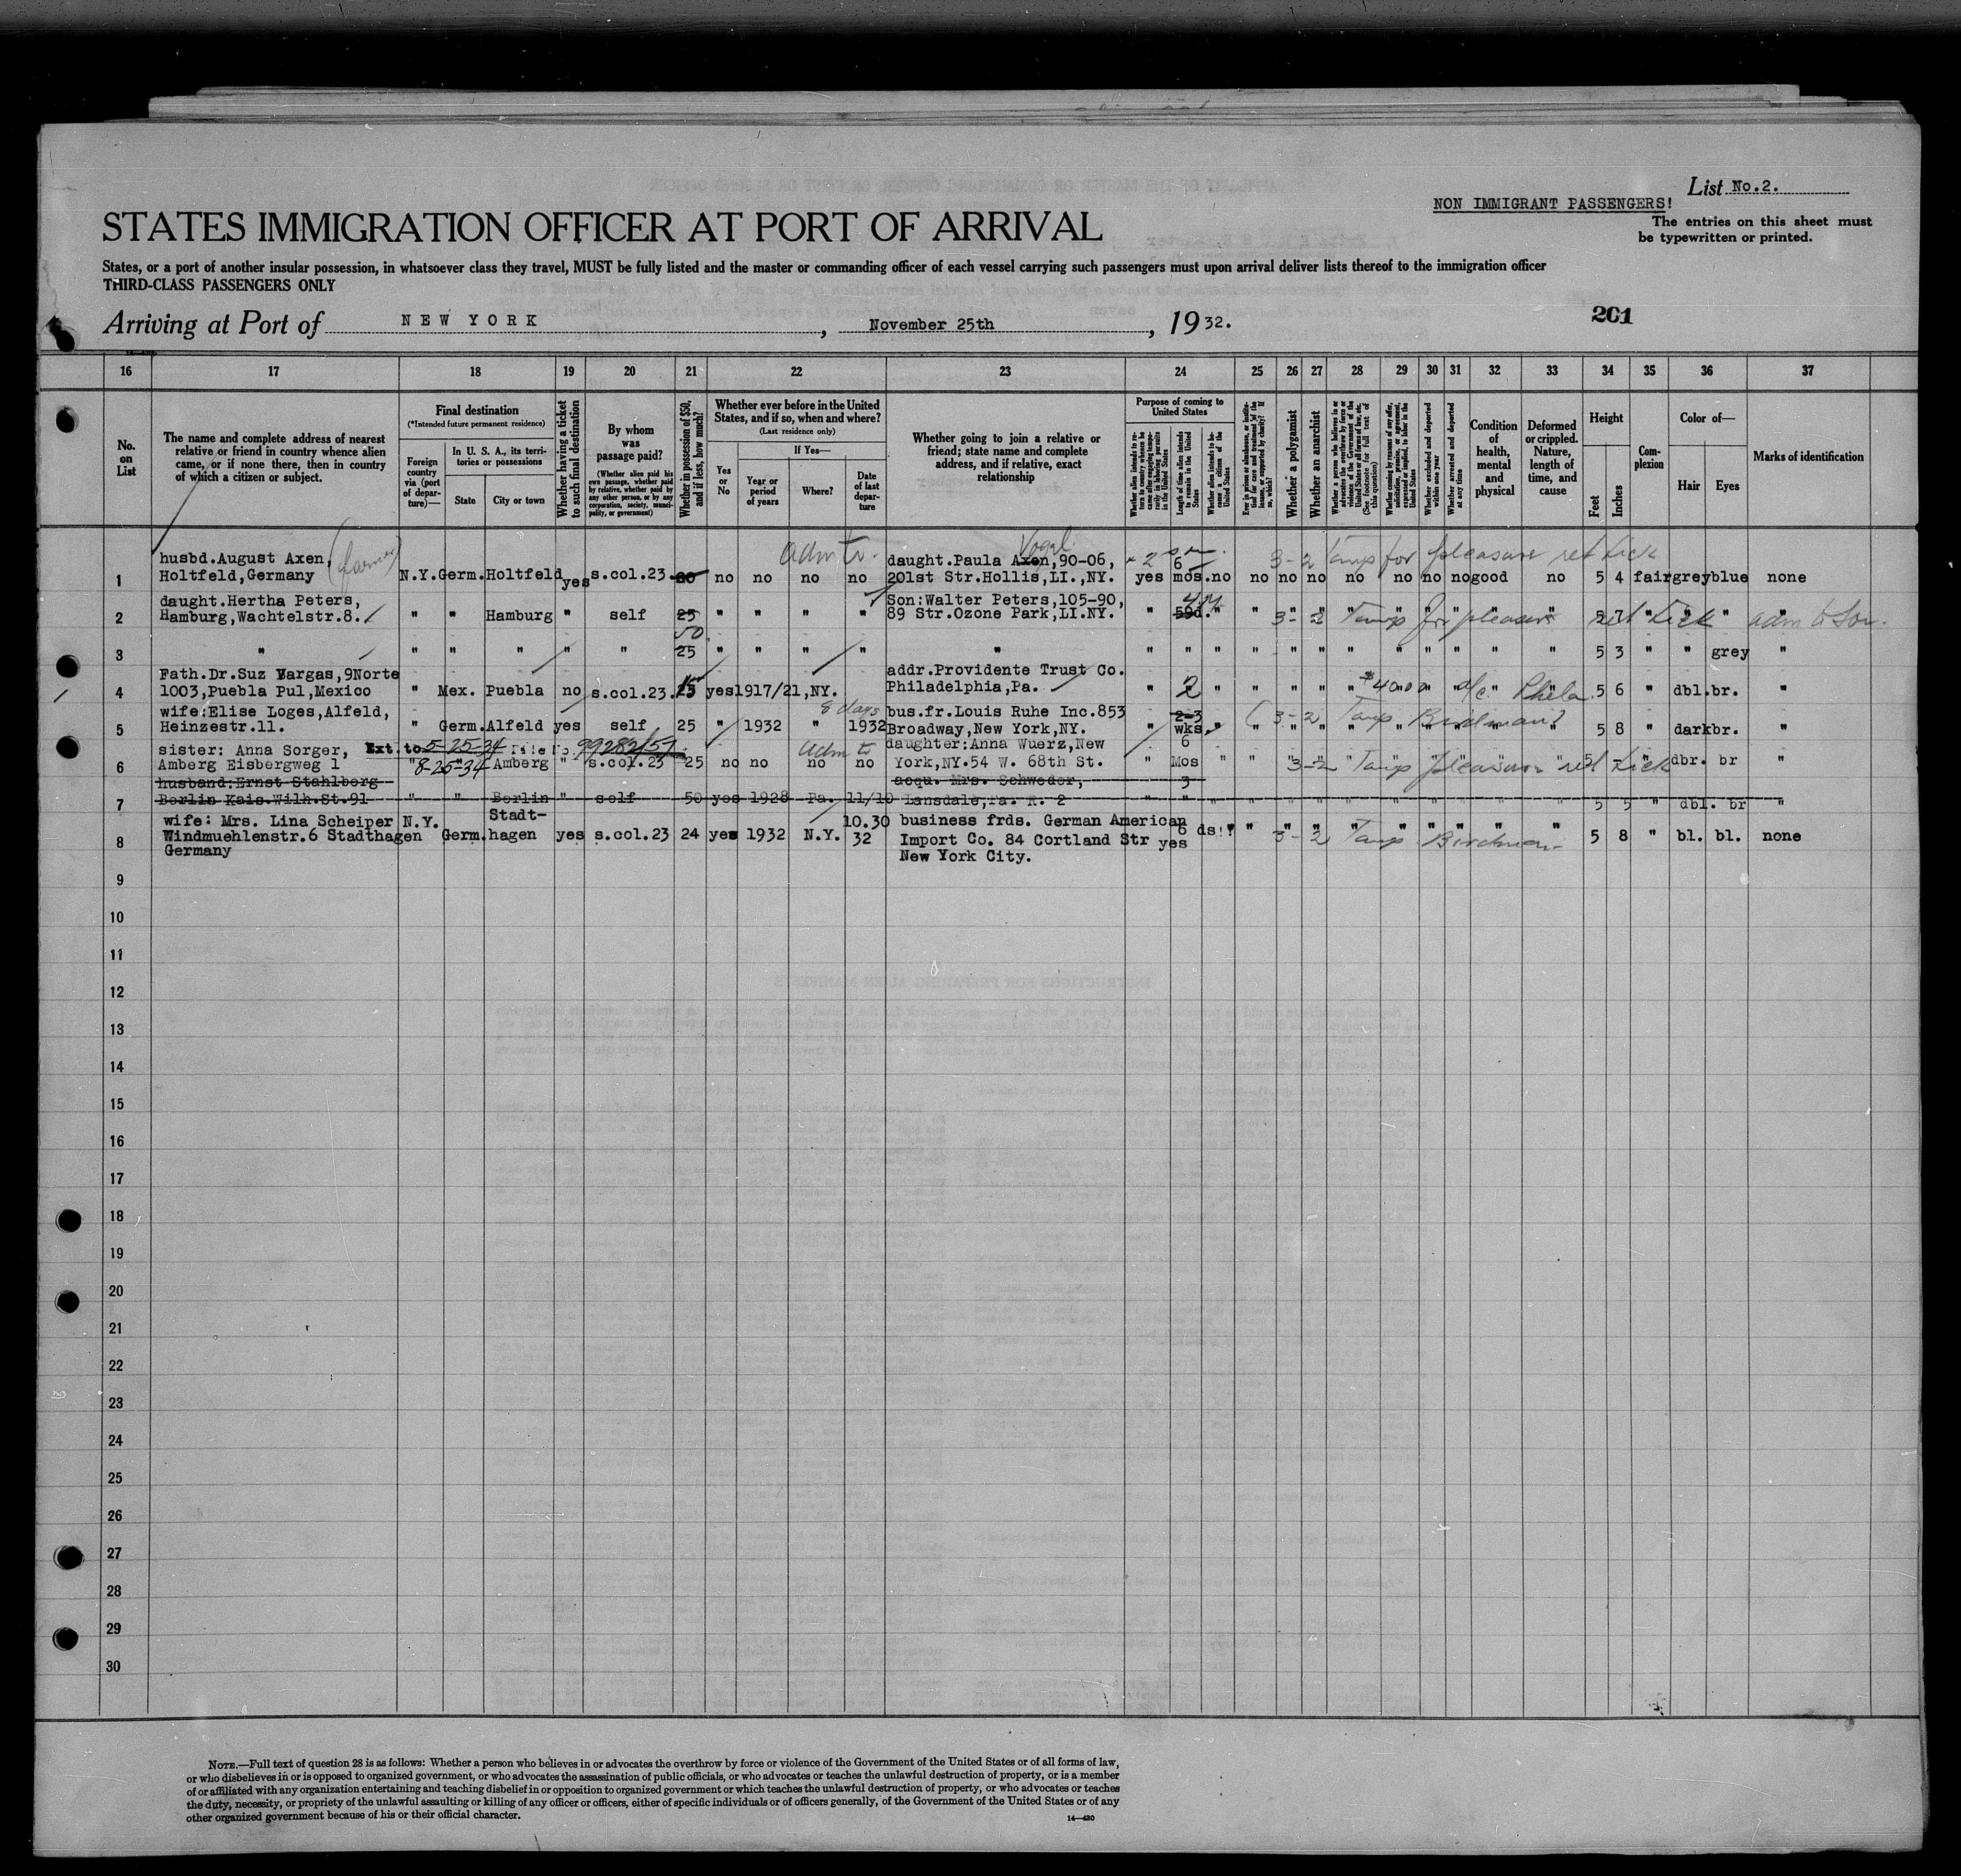 List No.2.
NON IMMIGRANT PASSENGERS!
STATES IMMIGRATION OFFICER AT PORT OF ARRIVAL
The entries on this sheet must
be typewritten or printed.
States, or a port of another insular possession, in whatsoever class they travel, MUST be fully listed and the master or commanding officer of each vessel carrying such passengers must upon arrival deliver lists thereof to the immigration officer
THIRD-CLASS PASSENGERS ONLY
Arriving at Port of NEW YORK, November 25th, 1932.
201
16 17 18 19 20 21 22 23 24 25 26 27 28 29 30 31 32 33 34 35 36 37
No. on List
The name and complete address of nearest relative or friend in country whence alien came, or if none there, then in country of which a citizen or subject.
Final destination
(*Intended future permanent residence)
Foreign country via (port of departure)—
In U. S. A., its territories or possessions
State
City or town
Whether having a ticket to such final destination
By whom was passage paid?
(Whether alien paid his own passage, whether paid by relative, whether paid by any other person, or by any corporation, society, municipality, or government)
Whether in possession of $50, and if less, how much?
Whether ever before in the United States, and if so, when and where?
(Last residence only)
If Yes—
Yes or No
Year or period of years
Where?
Date of last departure
Whether going to join a relative or friend; state name and complete address, and if relative, exact relationship
Purpose of coming to United States
Length of time alien intends to remain in the United States
Whether alien intends to become a citizen of the United States
Whether a polygamist
Whether an anarchist
Whether excluded and deported within one year
Whether arrested and deported at any time
Condition of health, mental and physical
Deformed or crippled. Nature, length of time, and cause
Height
Feet
Inches
Complexion
Color of—
Hair
Eyes
Marks of identification
adm to. Vogel 3-2 Temp for pleasure ret tick
husbd.August Axen, daught.Paula Axen,90-06, 6
1 Holtfeld,Germany N.Y. Germ. Holtfeld yes s.col.23 no no no no 201st Str.Hollis,LI.,NY. yes mos. no no no no no no no no good no 5 4 fair grey blue none
daught.Hertha Peters, Son:Walter Peters,105-90,
2 Hamburg,Wachtelstr.8. " " Hamburg " self 25 " " " " 89 Str.Ozone Park,LI.NY. " 59d. " 3-2 Temp for pleasure 5 7 ret tick " adm to Son.
50
3 " " " " " " 25 " " " " " " " " " " " " " " " " 5 3 " " grey "
Fath.Dr.Suz Vargas,9Norte addr.Providente Trust Co.
4 1003,Puebla Pul,Mexico " Mex. Puebla no s.col.23. 15 yes 1917/21,NY. Philadelphia,Pa. " 2 " " " " " $4000 a/c Phila 5 6 " dbl. br. "
wife:Elise Loges,Alfeld, 8 days bus.fr.Louis Ruhe Inc.853 2-3
5 Heinzestr.11. " Germ. Alfeld yes self 25 " 1932 " 1932 Broadway,New York,NY. " wks. " 3-2 Temp Birdman 5 8 " dark br. "
sister: Anna Sorger, Ext.to 5-25-34 File No. 99282/57 adm to daughter:Anna Wuerz,New 6
6 Amberg Eisbergweg 1 " 8-25-34 Amberg " s.col.23 25 no no no no York,NY.54 W. 68th St. " Mos " " 3-2 Temp pleasure ret tick dbr. br "
husband:Ernst Stahlberg acqu. Mrs. Schweder, 3
7 Berlin Kais.Wilh.St.91 " " Berlin " self 50 yes 1928 Pa. 11/10 Lansdale,Pa. R. 2 " " " " " " " " " " " " " 5 5 " dbl. br "
wife: Mrs. Lina Scheiper N.Y. Stadt- 10.30 business frds. German American
8 Windmuehlenstr.6 Stadthagen Germ. hagen yes s.col.23 24 yes 1932 N.Y. 32 Import Co. 84 Cortland Str yes 6 ds " " 3-2 Temp Birdman 5 8 " bl. bl. none
Germany New York City.
9
10
11
12
13
14
15
16
17
18
19
20
21
22
23
24
25
26
27
28
29
30
NOTE.—Full text of question 28 is as follows: Whether a person who believes in or advocates the overthrow by force or violence of the Government of the United States or of all forms of law,
or who disbelieves in or is opposed to organized government, or who advocates the assassination of public officials, or who advocates or teaches the unlawful destruction of property, or is a member
of or affiliated with any organization entertaining and teaching disbelief in or opposition to organized government or which teaches the unlawful destruction of property, or who advocates or teaches
the duty, necessity, or propriety of the unlawful assaulting or killing of any officer or officers, either of specific individuals or of officers generally, of the Government of the United States or of any
other organized government because of his or their official character.
14—430